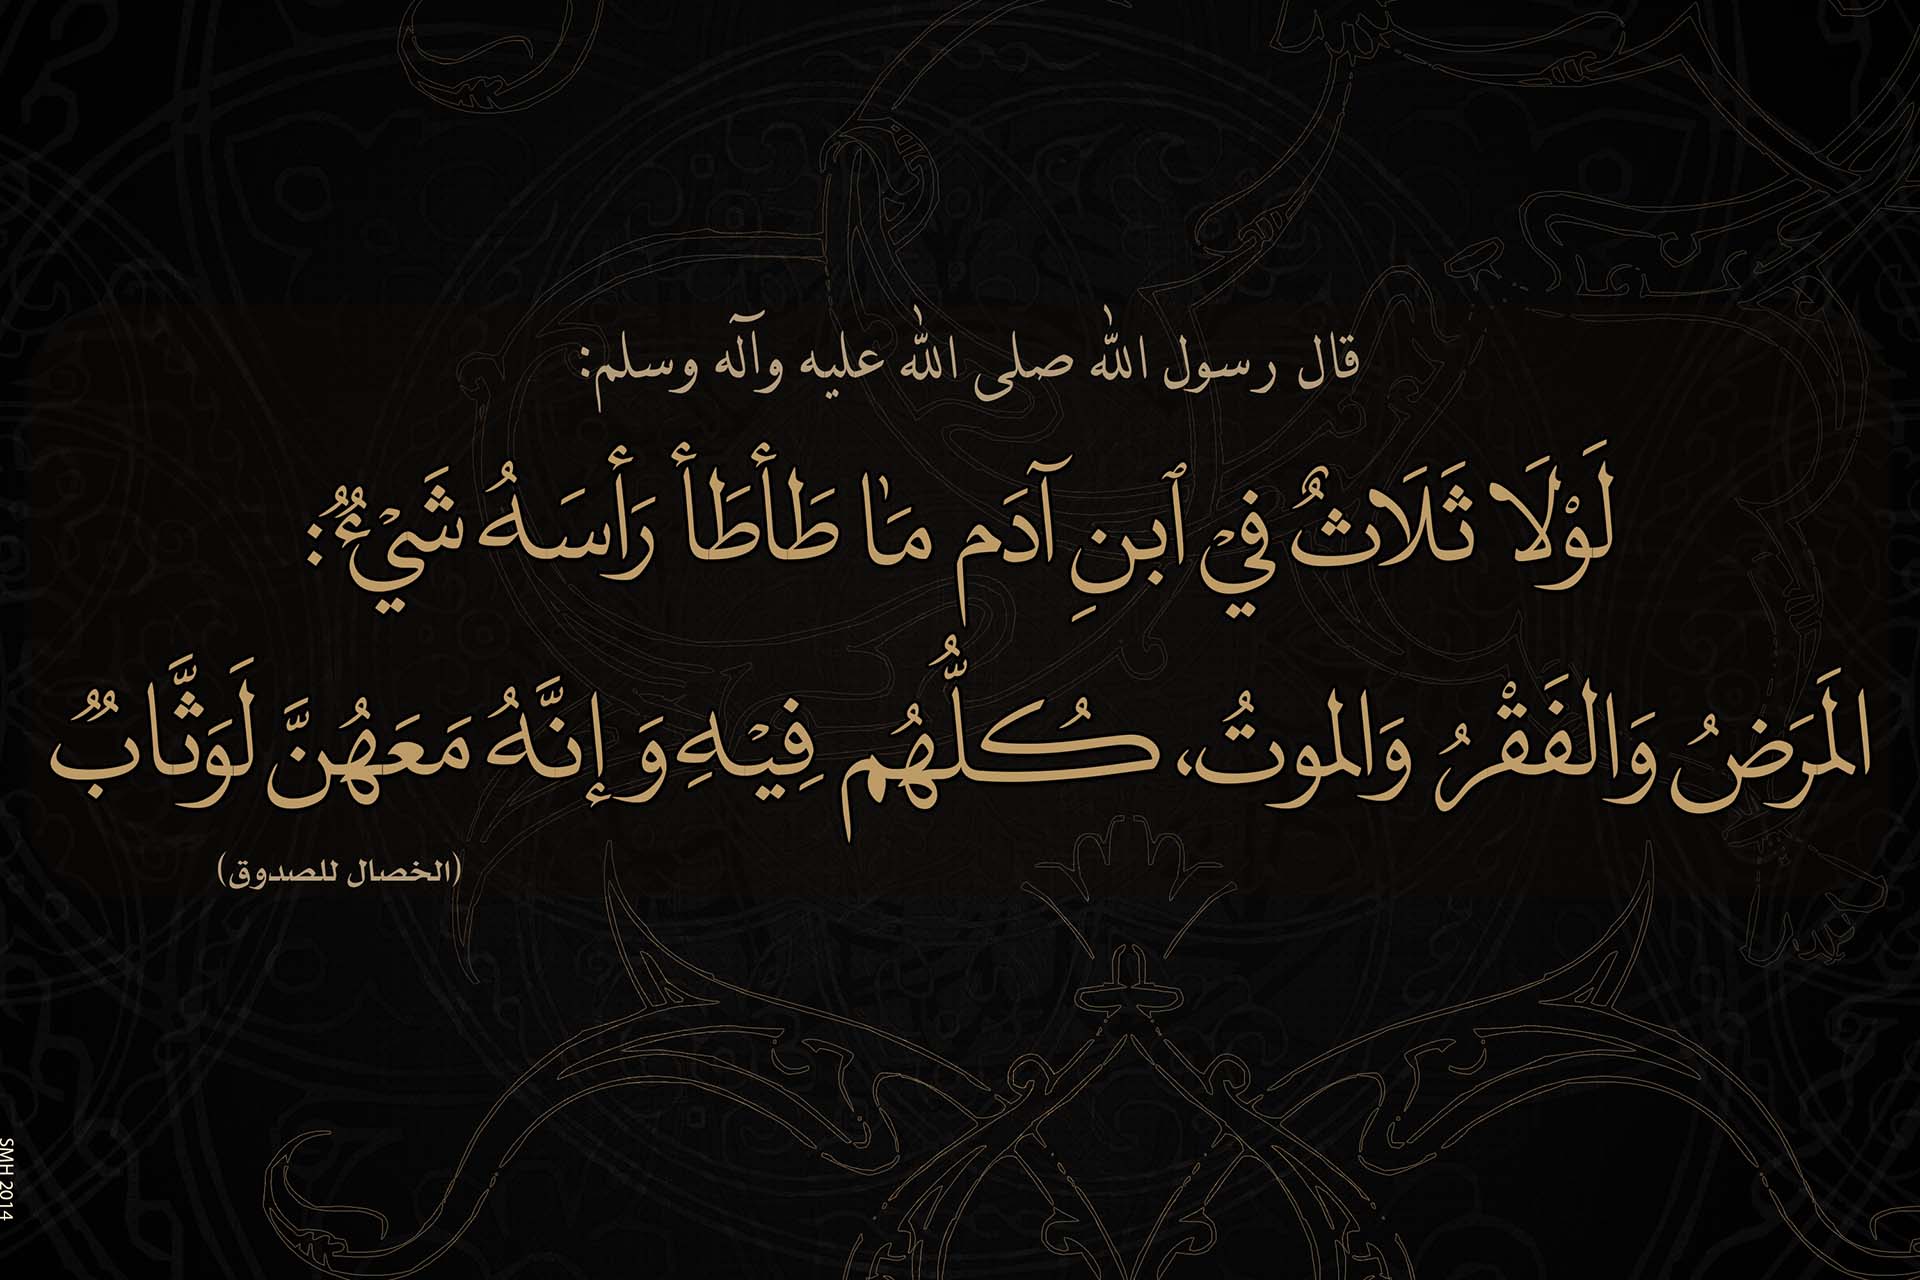 قال رسول الله صلى الله عليه وآله وسلم:
لَوْلَا ثَلَاثٌ فيْ ٱبنِ آدَم مَا طَأطَأ رَأسَهُ شَيْءٌ:
المَرَضُ وَالفَقْرُ وَالموتُ، كُلُّهُم فِيْهِ وَ إنَّهُ مَعَهُنَّ لَوَثَّابٌ
(الخصال للصدوق)
SMH 2014